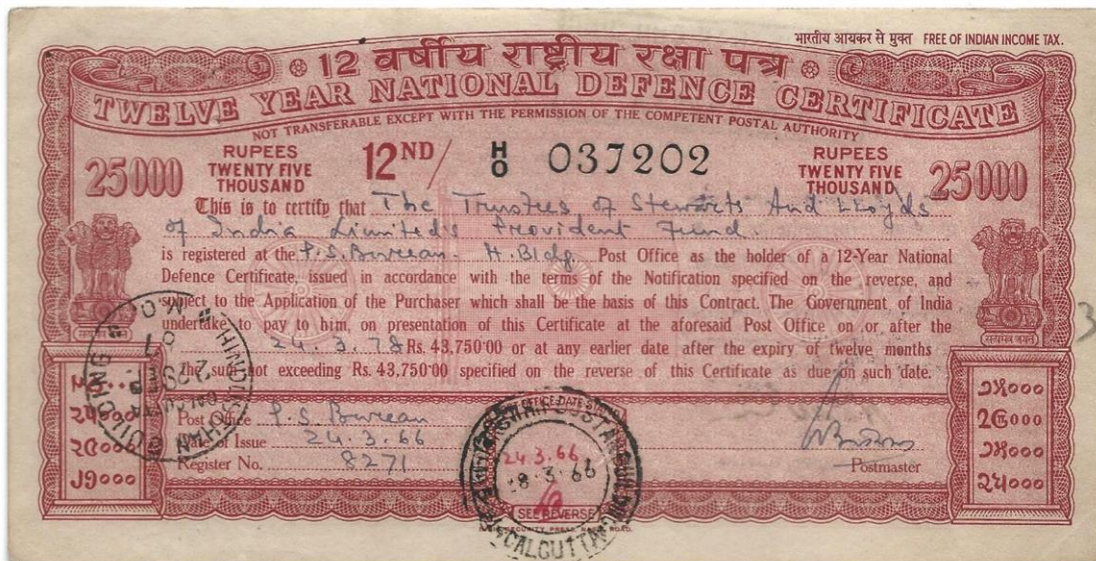 भारतीय आयकर से मुक्त FREE OF INDIAN INCOME TAX.
12 वर्षीय राष्ट्रीय रक्षा पत्र
TWELVE YEAR NATIONAL DEFENCE CERTIFICATE
NOT TRANSFERABLE EXCEPT WITH THE PERMISSION OF THE COMPETENT POSTAL AUTHORITY
25000 RUPEES TWENTY FIVE THOUSAND 12ND/ H/O 037202 RUPEES TWENTY FIVE THOUSAND 25000
This is to certify that The Trustees of Stewarts And Lloyds
of India Limited's Provident Fund.
is registered at the P.S. Bureau - H. Bldg. Post Office as the holder of a 12-Year National
Defence Certificate, issued in accordance with the terms of the Notification specified on the reverse, and
subject to the Application of the Purchaser which shall be the basis of this Contract. The Government of India
undertake to pay to him, on presentation of this Certificate at the aforesaid Post Office on or after the
24.3.78 Rs. 43,750·00 or at any earlier date after the expiry of twelve months
the sum not exceeding Rs. 43,750·00 specified on the reverse of this Certificate as due on such date.
सत्यमेव जयते
Post Office P.S. Bureau
Date of Issue 24.3.66
Register No. 8271
Postmaster
২৫০০০
24.3.66
3.66
SEE REVERSE
CALCUTTA